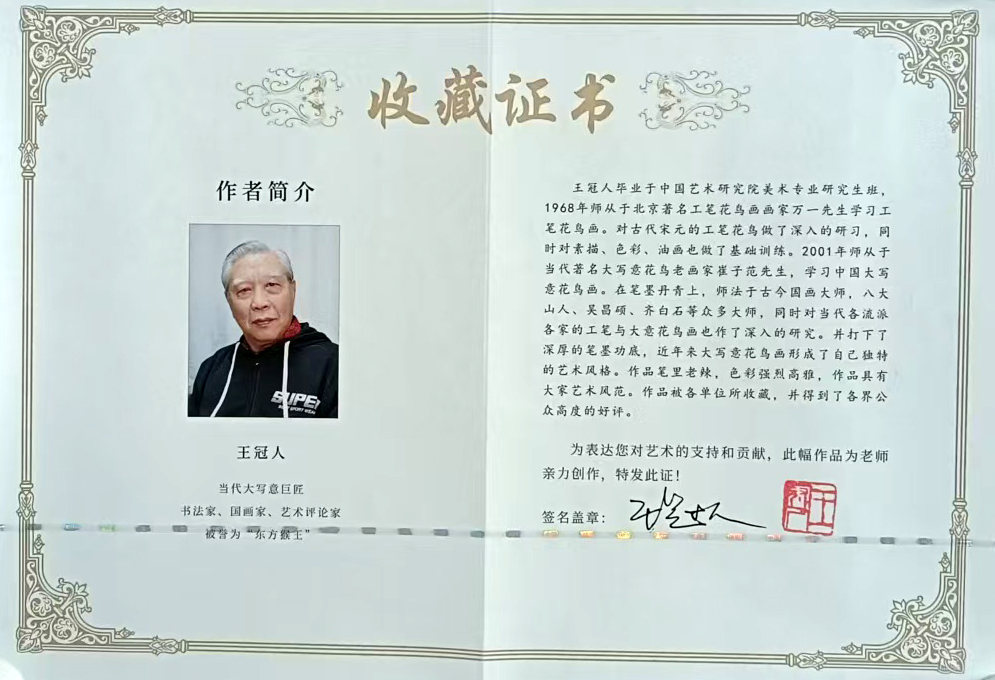 收藏证书
作者简介
SUPER
SPORT WEAR
王冠人
当代大写意巨匠
书法家、国画家、艺术评论家
被誉为“东方猴王”
王冠人毕业于中国艺术研究院美术专业研究生班，
1968年师从于北京著名工笔花鸟画画家万一先生学习工
笔花鸟画。对古代宋元的工笔花鸟做了深入的研习，同
时对素描、色彩、油画也做了基础训练。2001年师从于
当代著名大写意花鸟老画家崔子范先生，学习中国大写
意花鸟画。在笔墨丹青上，师法于古今国画大师，八大
山人、吴昌硕、齐白石等众多大师，同时对当代各流派
各家的工笔与大意花鸟画也作了深入的研究。并打下了
深厚的笔墨功底，近年来大写意花鸟画形成了自己独特
的艺术风格。作品笔里老辣，色彩强烈高雅，作品具有
大家艺术风范。作品被各单位所收藏，并得到了各界公
众高度的好评。
为表达您对艺术的支持和贡献，此幅作品为老师
亲力创作，特发此证！
签名盖章：